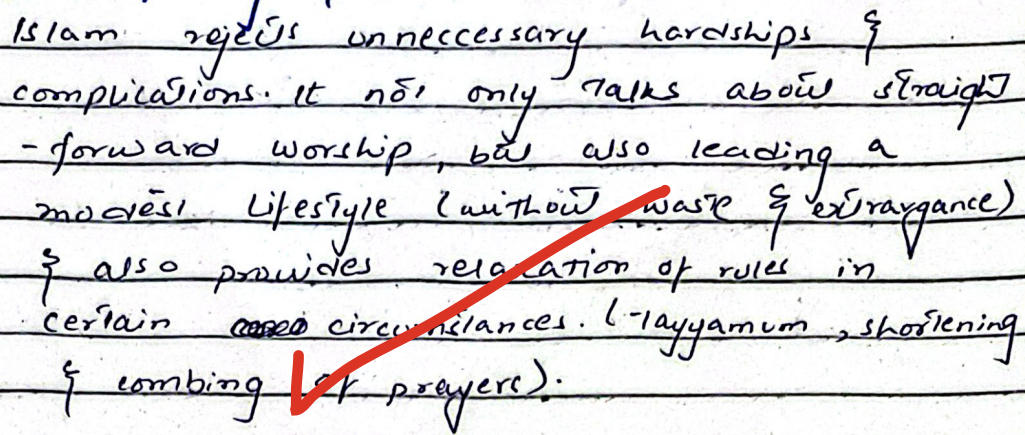 Islam rejects unneccessary hardships &
complications. It not only talks about straight
-forward worship, but also leading a
modest lifestyle (without waste & extravargance)
& also provides relaxation of rules in
certain circumstances. (-Tayyamum, shortening
& combing of prayers).